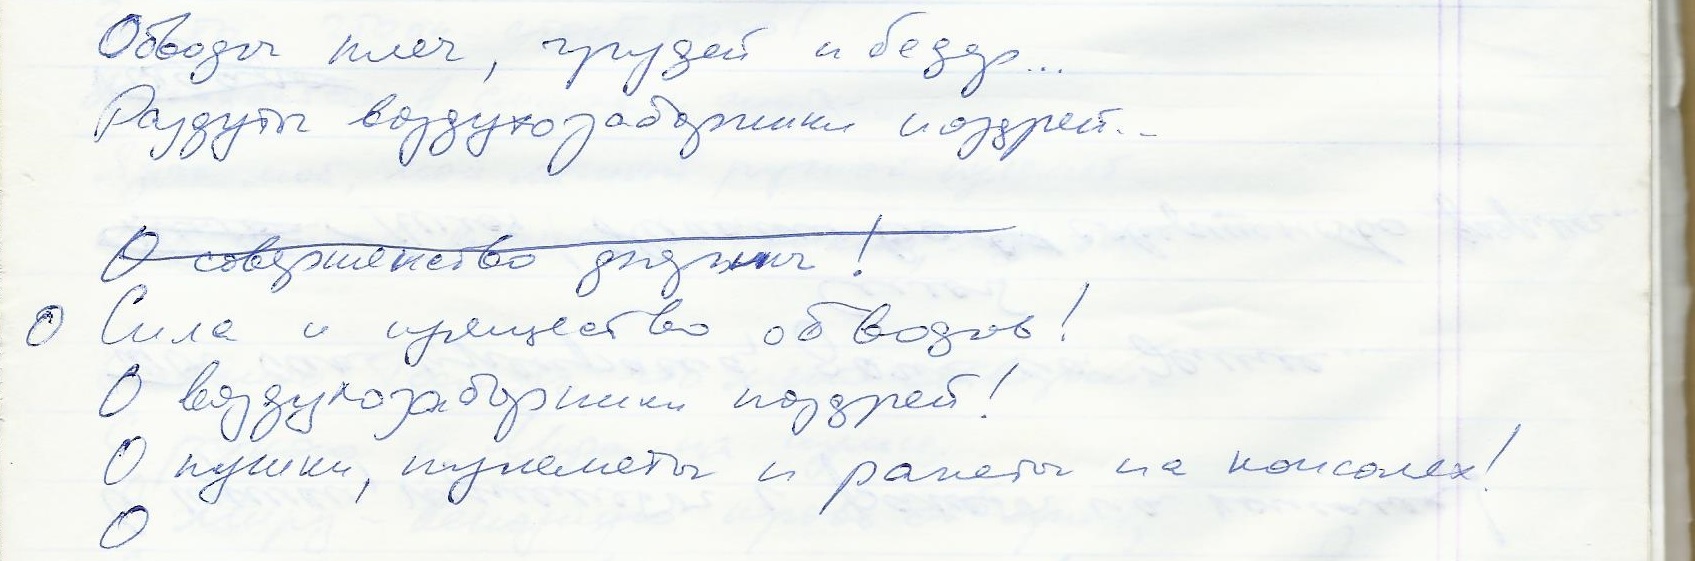 Обводы плеч, грудей и бедер...
Раздуты воздухозаборники ноздрей...
О совершенство
О Сила и изящество обводов!
О воздухозаборники ноздрей!
О пушки, пулеметы и ракеты на консолях!
О